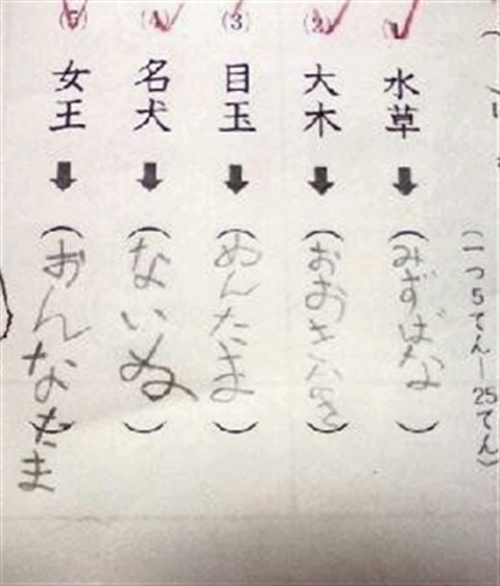 (一つ5てん—25てん)
水草➡(みずばな)
(2) 大木➡(おおきいのき)
(3) 目玉➡(めんたま)
(4) 名犬➡(ないぬ)
(5) 女王➡(おんなたま)